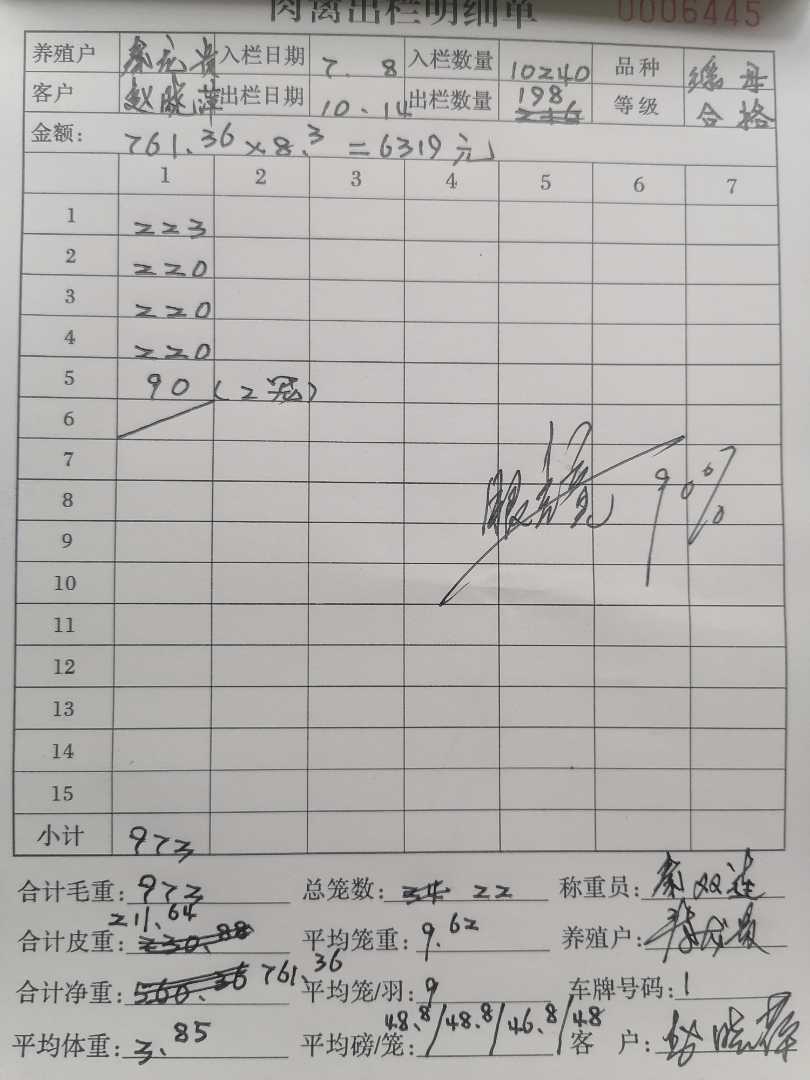 肉禽出栏明细单 0006445
养殖户 秦元贵 入栏日期 7.8 入栏数量 10240 品种
客户 赵晓萍 出栏日期 10.14 出栏数量 198 等级 合格
金额: 761.36×8.3=6319元
1 2 3 4 5 6 7
1 223
2 220
3 220
4 220
5 90 (2冠)
6
7
8 90%
9
10
11
12
13
14
15
小计 973
合计毛重: 973 总笼数: 22 称重员: 秦双进
合计皮重: 211.64 平均笼重: 9.62 养殖户:
合计净重: 761.36 平均笼/羽: 9 车牌号码: 1
平均体重: 3.85 平均磅/笼: 48.8/48.8/46.8/48 客 户: 赵晓萍